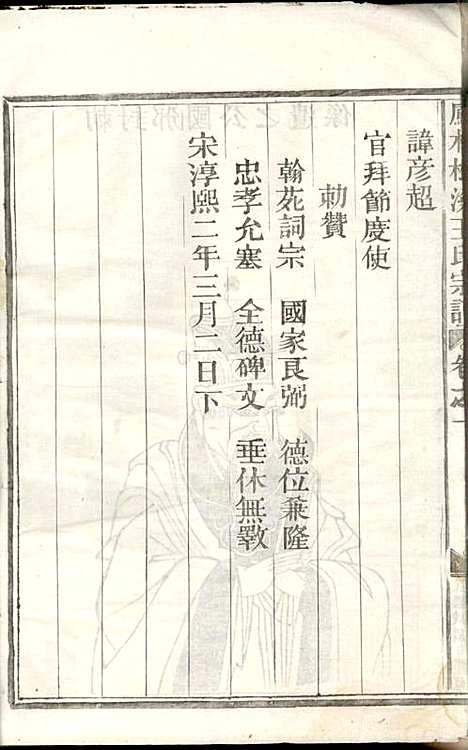 王氏宗譜
諱彦超
官拜節度使
勅贊
翰苑詞宗 國家良弼 德位兼隆
忠孝允塞 全德碑文 垂休無斁
宋淳熙二年三月二日下
像遺之公國邠封朝